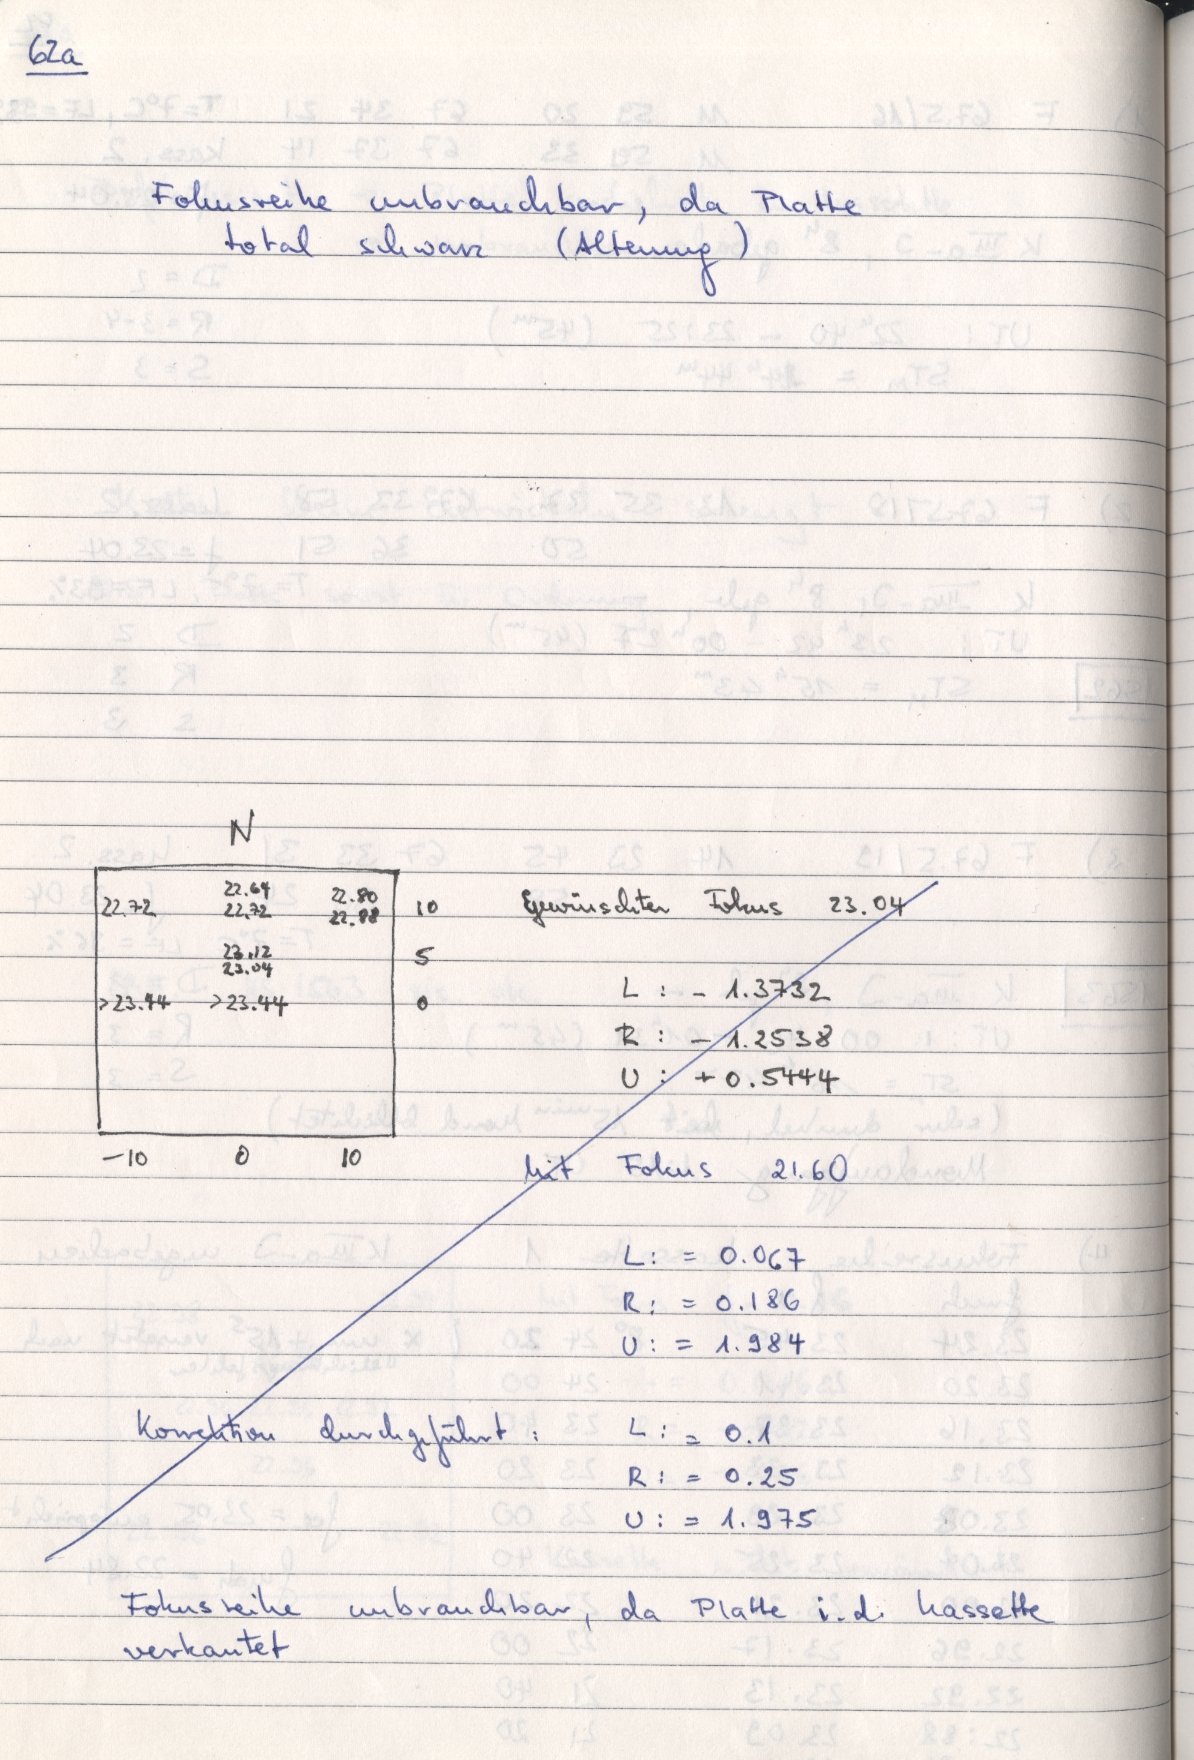 62a
Fokusreihe unbrauchbar, da Platte
total schwarz (Alterung)
N
22.64 22.80
22.72 22.72 22.88 10
23.12
23.04 5
>23.44 >23.44 0
-10 0 10
Gewünschter Fokus 23.04
L : - 1.3732
R : - 1.2538
U : + 0.5444
Mit Fokus 21.60
L : = 0.067
R : = 0.186
U : = 1.984
Korrektion durchgeführt : L : = 0.1
R : = 0.25
U : = 1.975
Fokusreihe unbrauchbar, da Platte i.d. Kassette
verkantet